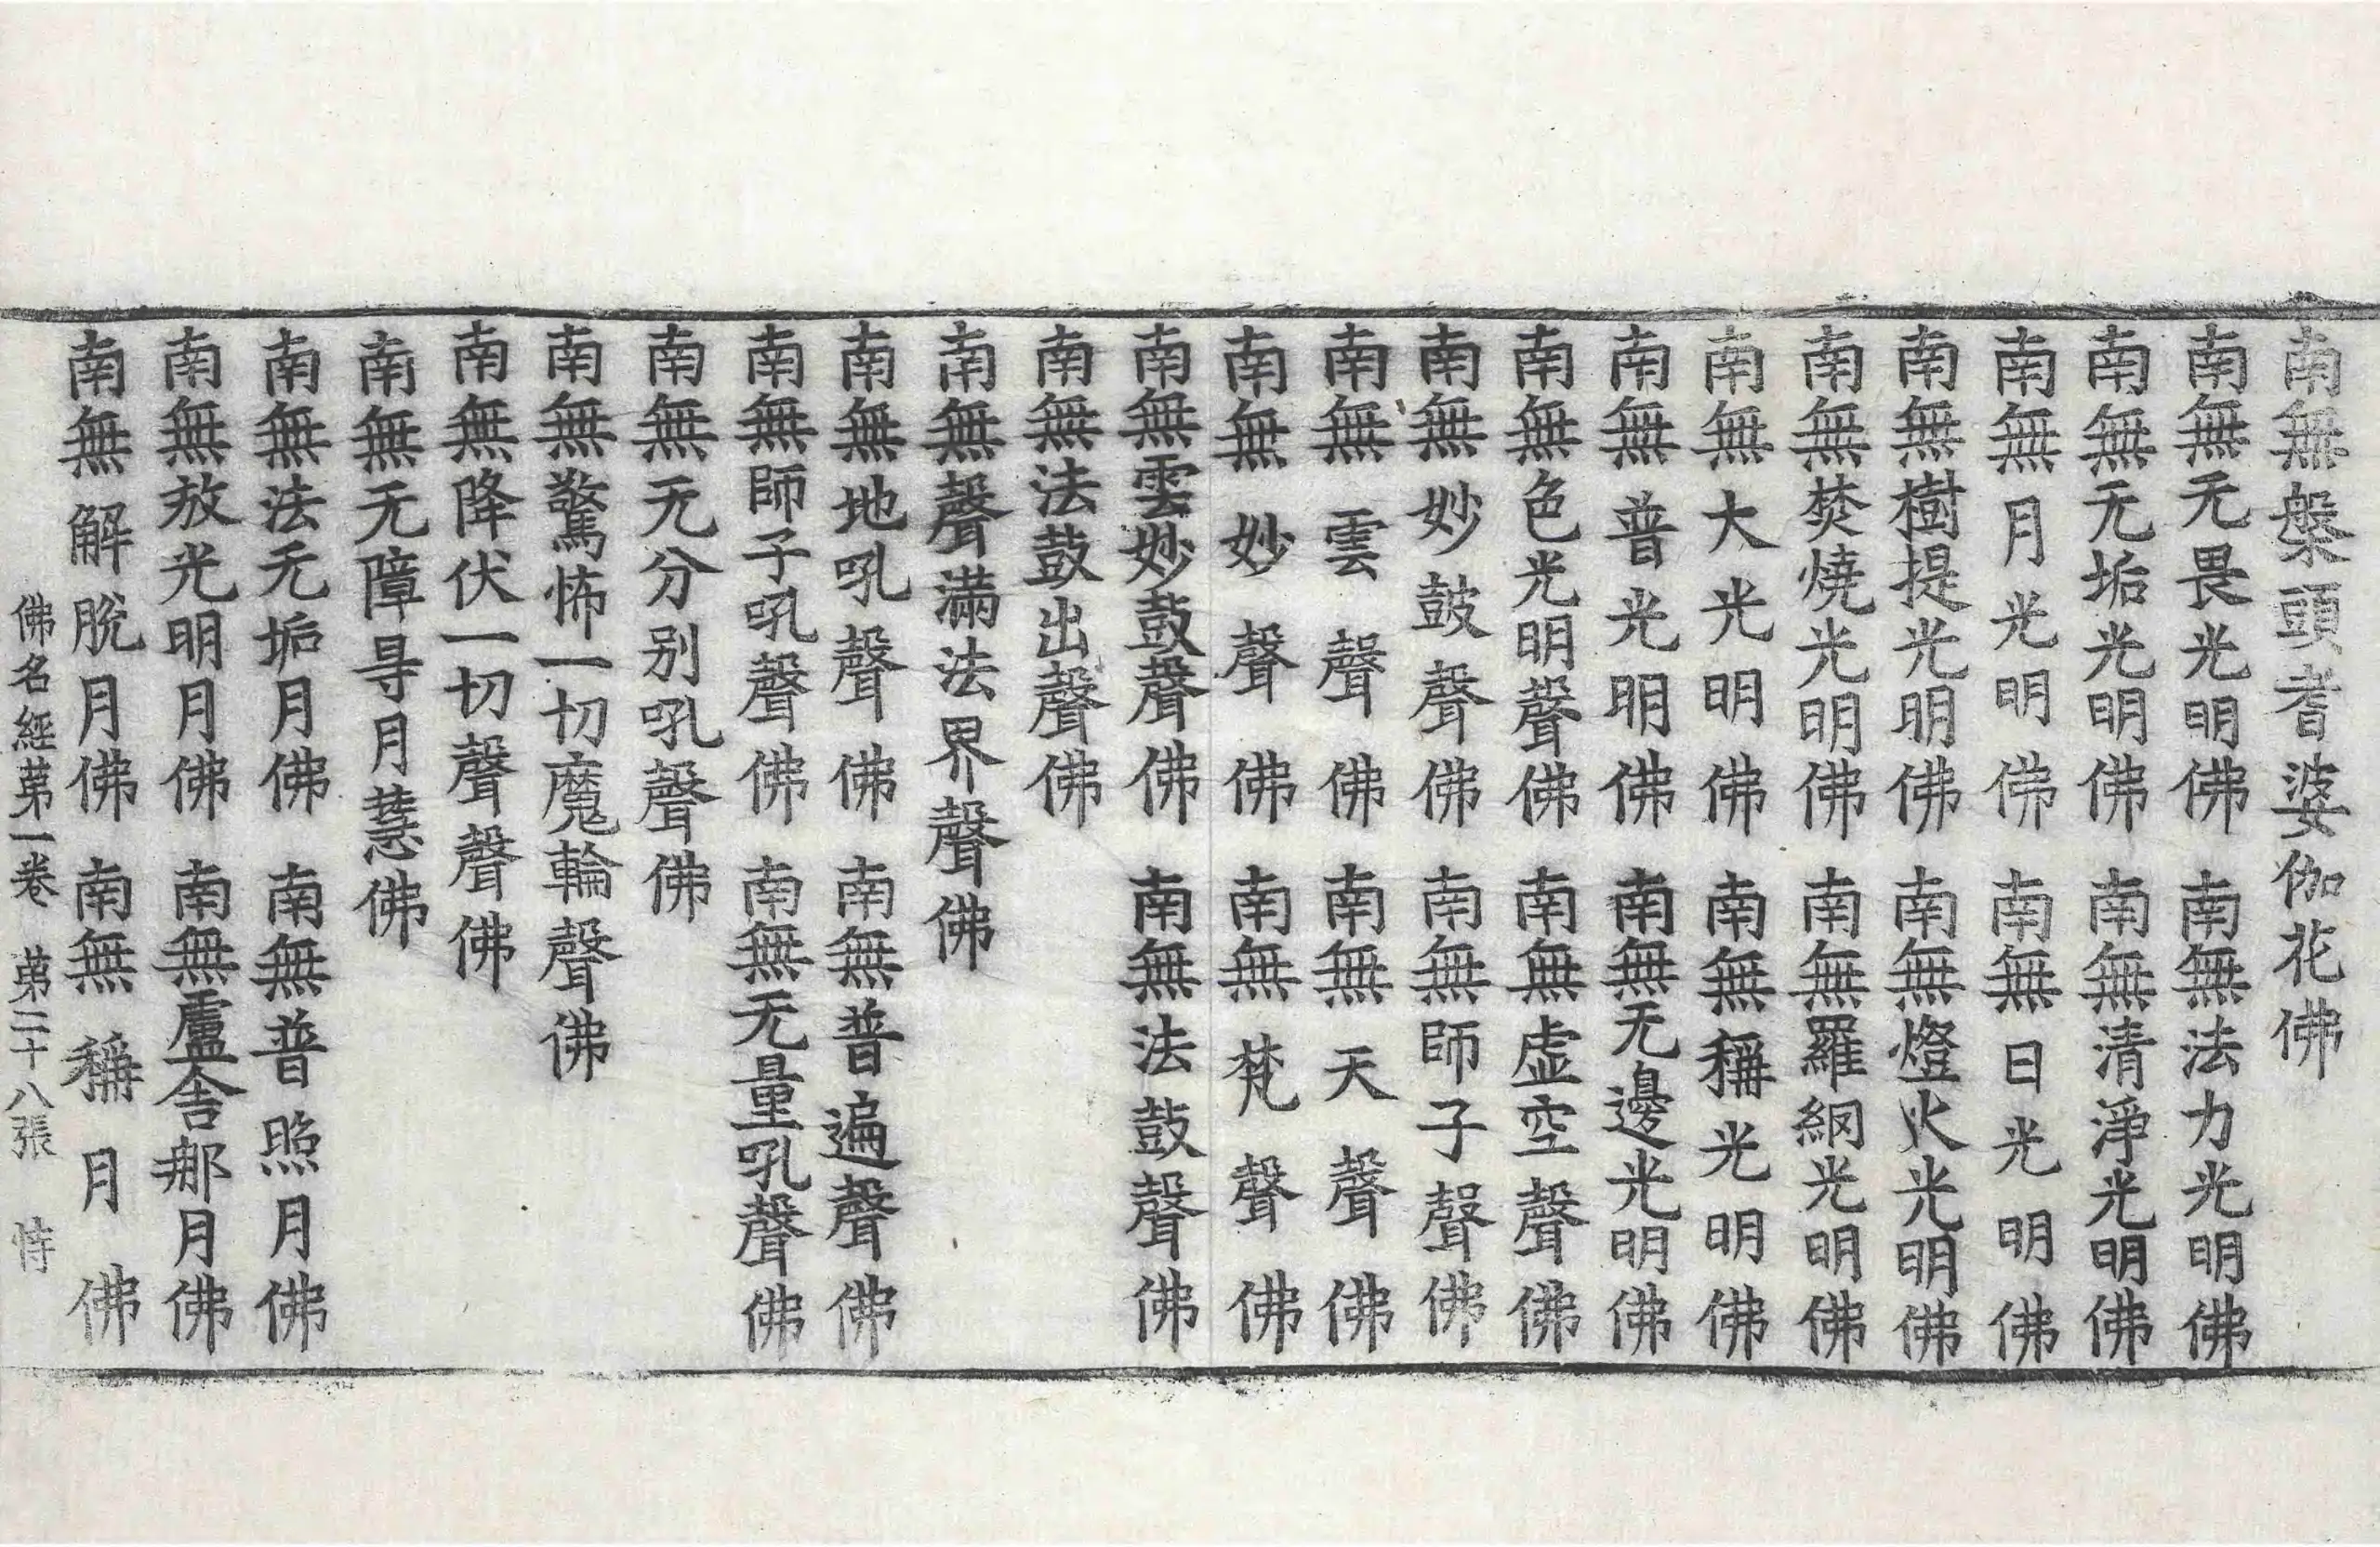 南無槃頭耆婆伽花佛
南無无畏光明佛　南無法力光明佛
南無无垢光明佛　南無清淨光明佛
南無月光明佛　南無日光明佛
南無樹提光明佛　南無燈火光明佛
南無焚燒光明佛　南無羅網光明佛
南無大光明佛　南無稱光明佛
南無普光明佛　南無无邊光明佛
南無色光明聲佛　南無虛空聲佛
南無妙鼓聲佛　南無師子聲佛
南無雲聲佛　南無天聲佛
南無妙聲佛　南無梵聲佛
南無雲妙鼓聲佛　南無法鼓聲佛
南無法鼓出聲佛
南無聲滿法界聲佛
南無地吼聲佛　南無普遍聲佛
南無師子吼聲佛　南無无量吼聲佛
南無无分别吼聲佛
南無驚怖一切魔輪聲佛
南無降伏一切聲聲佛
南無无障㝵月慧佛
南無法无垢月佛　南無普照月佛
南無放光明月佛　南無盧舍那月佛
南無解脫月佛　南無稱月佛
佛名經苐一卷　苐二十八張　恃